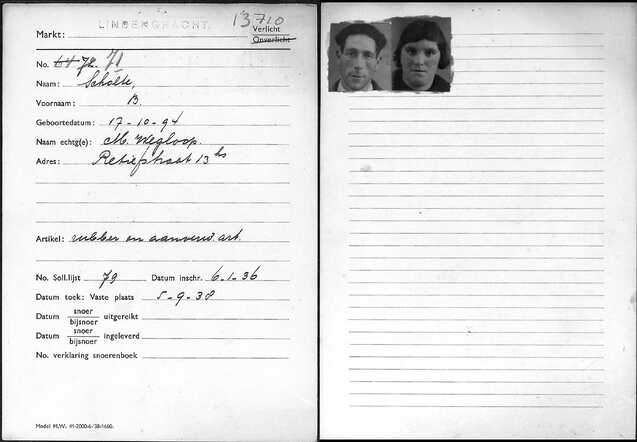 LINDENGRACHT.
13710
Markt:
Verlicht
Onverlicht
No. 64 72. 71
Naam: Scholte,
Voornaam: B.
Geboortedatum: 17-10-94
Naam echtg(e): M. Wegloop.
Adres: Retiefstraat 13 hs
Artikel: rubber en aanverw. art.
No. Soll.lijst 79 Datum inschr. 6-1-36
Datum toek: Vaste plaats 5-9-38
Datum snoer uitgereikt
bijsnoer
Datum snoer ingeleverd
bijsnoer
No. verklaring snoerenboek
Model M.W. 41-2000-6/38-1660.